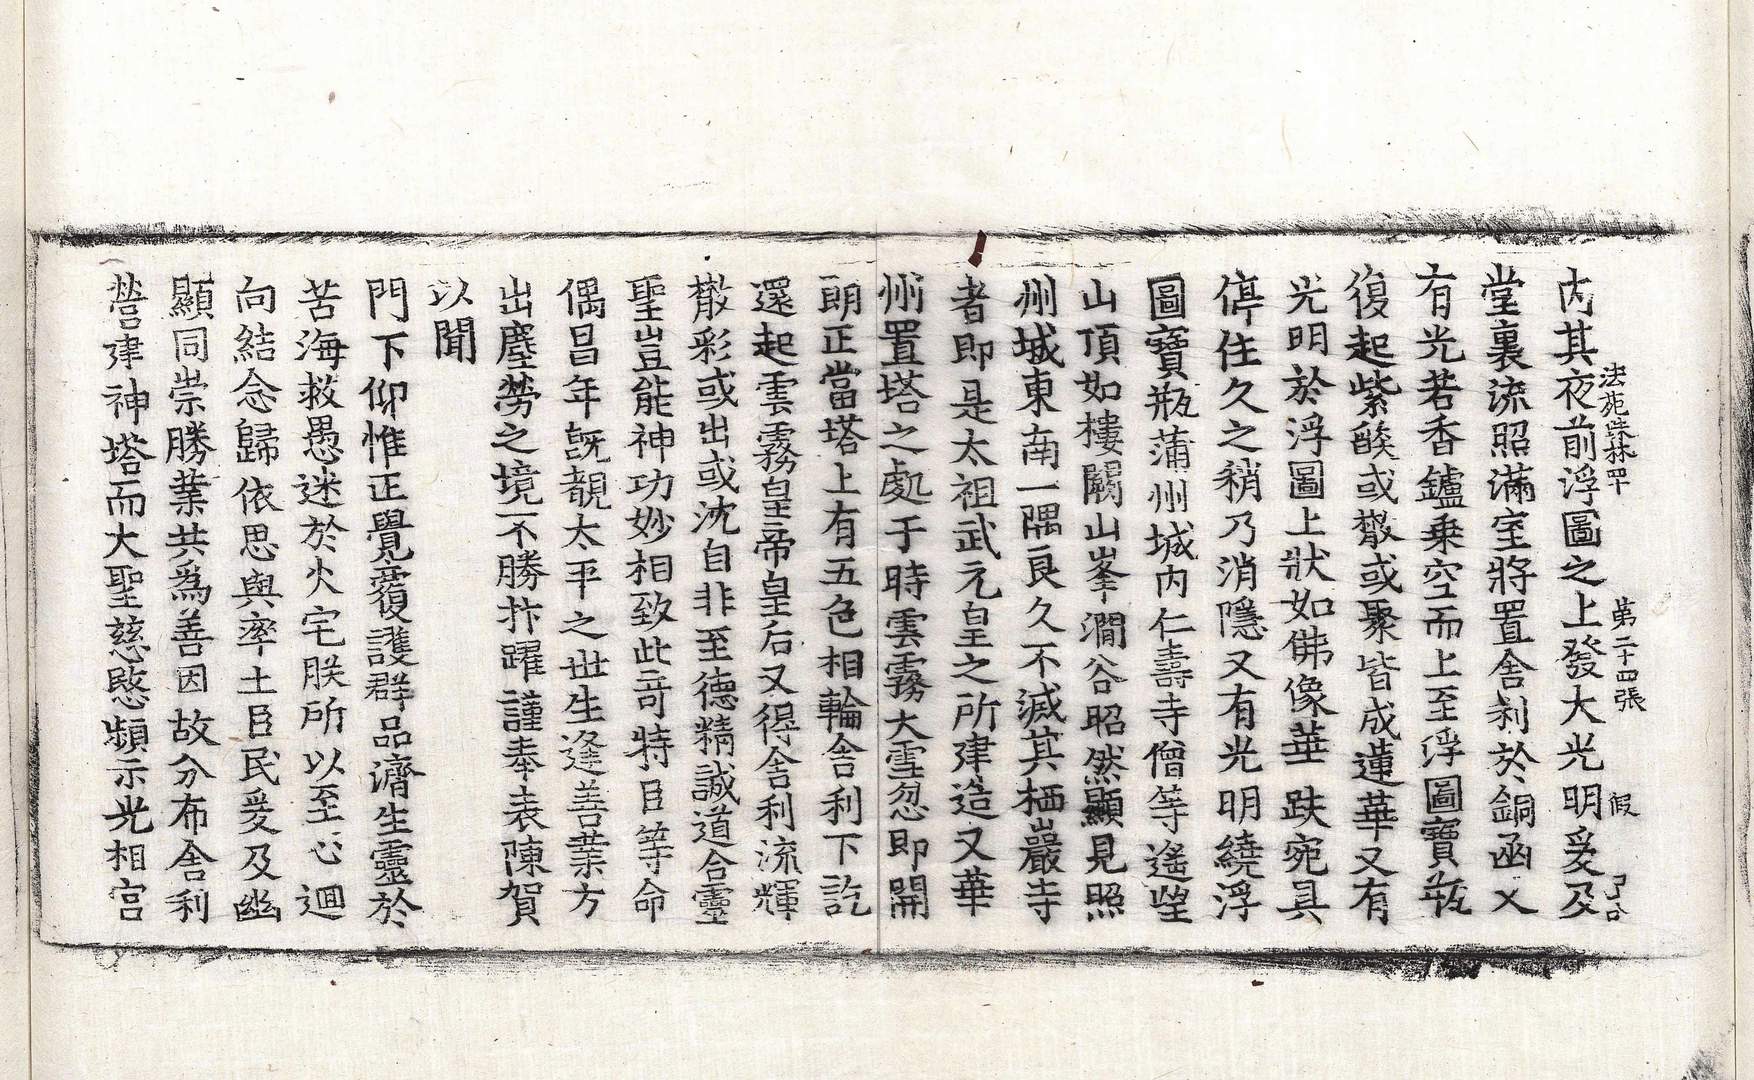 法苑珠林四十 第二十四張 假 了㕣
內其夜前浮圖之上發大光明爰及
堂裏流照滿室將置舍利於銅函又
有光若香鑪乗空而上至浮圖寶瓶
復起紫𦦨或㪚或聚皆成蓮華又有
光明於浮圖上狀如佛像華趺宛具
停住久之稍乃消隱又有光明繞浮
圖寶瓶蒲州城內仁壽寺僧等遙望
山頂如樓闕山峯澗谷昭然顯見照
州城東南一隅良久不滅其栖巖寺
者即是太祖武元皇之所建造又華
州置塔之處于時雲霧大雪忽即開
朗正當塔上有五色相輪舍利下訖
還起雲霧皇帝皇后又得舍利流輝
㪚彩或出或沈自非至德精誠道合靈
聖豈能神功妙相致此奇特臣等命
偶昌年旣覩太平之世生逢善業方
出塵勞之境不勝抃躍謹奉表陳賀
以聞
門下仰惟正覺覆護群品濟生靈於
苦海救愚迷於火宅朕所以至心迴
向結念歸依思與率土臣民爰及幽
顯同崇勝業共爲善因故分布舍利
營建神塔而大聖慈愍頻示光相宮